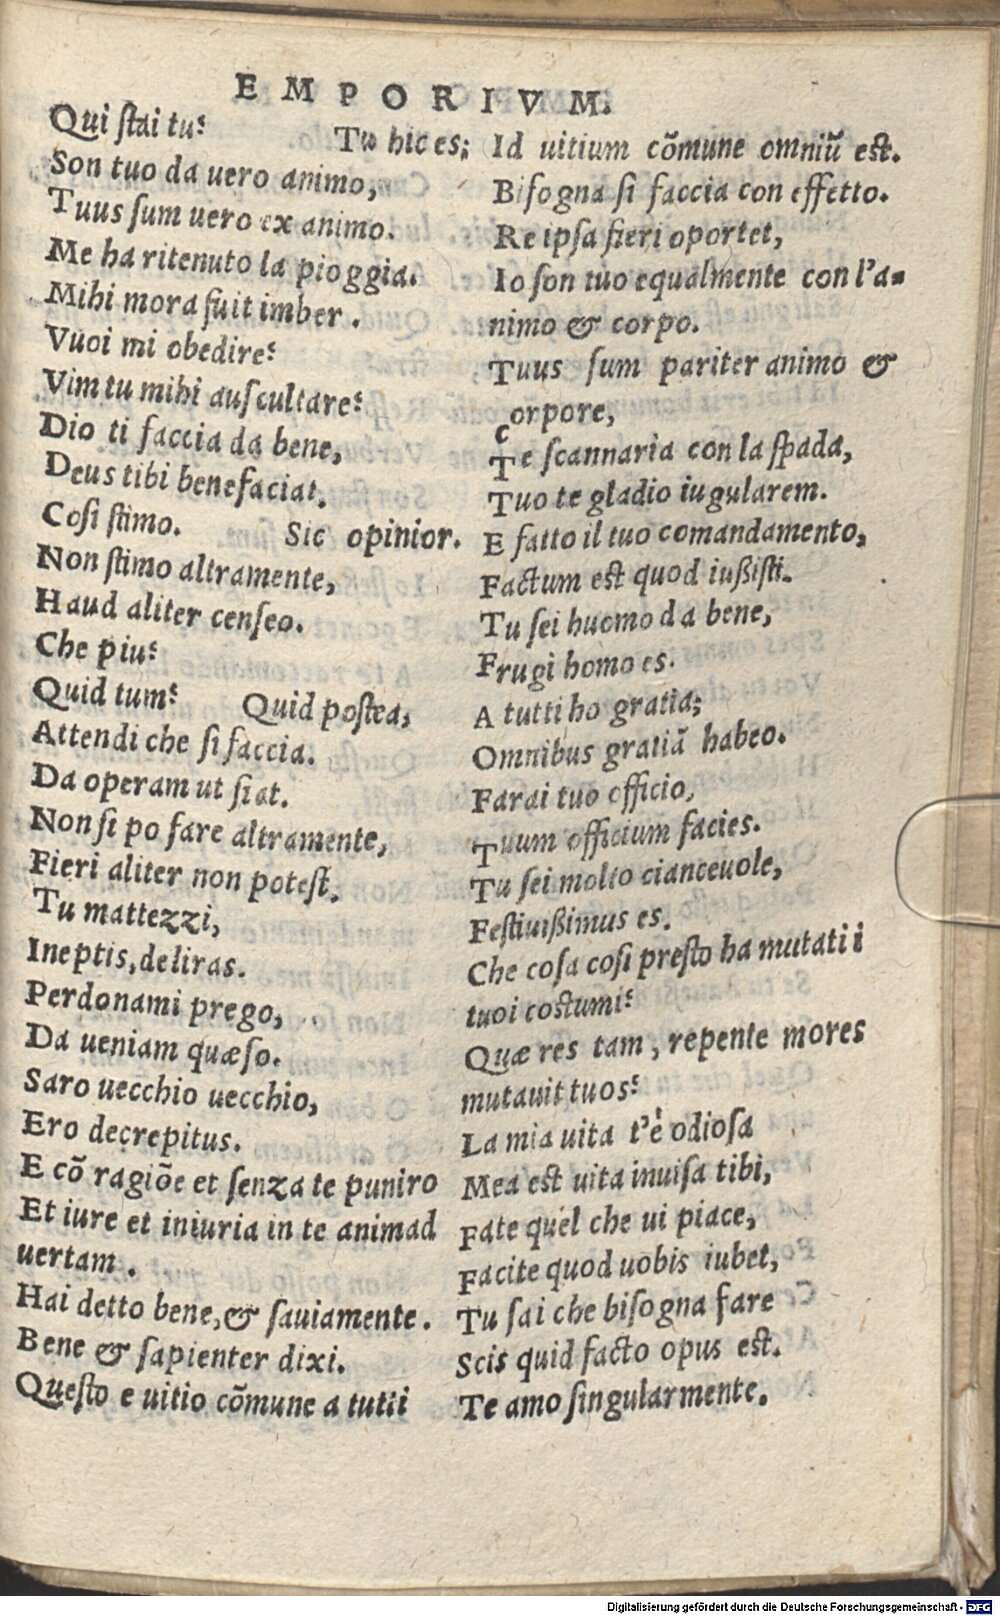 EMPORIVM.
Qui ſtai tu? Tu hic es;
Son tuo da uero animo,
Tuus ſum uero ex animo.
Me ha ritenuto la pioggia.
Mihi mora fuit imber.
Vuoi mi obedire?
Vim tu mihi auſcultare?
Dio ti faccia da bene,
Deus tibi benefaciat.
Coſi ſtimo. Sic opinior.
Non ſtimo altramente,
Haud aliter cenſeo.
Che piu?
Quid tum? Quid poſtea,
Attendi che ſi faccia.
Da operam ut fiat.
Non ſi po fare altramente,
Fieri aliter non poteſt.
Tu mattezzi,
Ineptis, deliras.
Perdonami prego,
Da ueniam quæſo.
Saro uecchio uecchio,
Ero decrepitus.
E cõ ragiõe et ſenza te puniro
Et iure et iniuria in te animad
uertam.
Hai detto bene, & ſauiamente.
Bene & ſapienter dixi.
Queſto e uitio cõmune a tutti
Id uitium cõmune omniũ eſt.
Biſogna ſi faccia con effetto.
Re ipſa fieri oportet,
Io ſon tuo equalmente con l'a-
nimo & corpo.
Tuus ſum pariter animo &
corpore,
Te scannaria con la ſpada,
Tuo te gladio iugularem.
E fatto il tuo comandamento,
Factum eſt quod iußiſti.
Tu ſei huomo da bene,
Frugi homo es.
A tutti ho gratia;
Omnibus gratiã habeo.
Farai tuo officio,
Tuum officium facies.
Tu ſei molto cianceuole,
Feſtiuißimus es.
Che coſa coſi preſto ha mutati i
tuoi coſtumi?
Quæ res tam, repente mores
mutauit tuos?
La mia uita t'è odioſa
Mea eſt uita inuiſa tibi,
Fate quel che ui piace,
Facite quod uobis iubet,
Tu ſai che biſogna fare
Scis quid facto opus eſt.
Te amo ſingularmente.
Digitalisierung gefördert durch die Deutsche Forschungsgemeinschaft - DFG